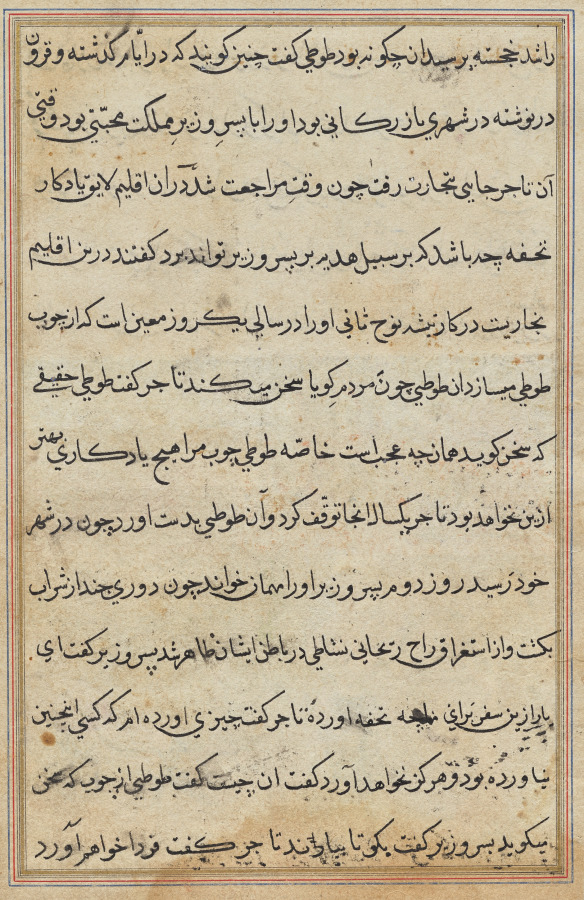 راشد خجسته پرسیدان چکونه بود طوطی کفت چنین کویند که در ایّام کذشته و قرون
درنوشته در شهری بازرکانی بود او را با پسرِ وزیرِ مملکت محبّتی بود وقتی
آن تاجر جایی بتجارت رفت چون وقتِ مراجعت شد دران اقلیم لایق یادکار
تحفه چه باشد که بر سبیل هدیه بر پسر وزیر تواند برد کفتند درین اقلیم
نجاریت در کار تیشه نوح ثانی او را در سالی یکروز معین است که از چوب
طوطی میسازدان طوطی چون مردم کویا سخن میکند تاجر کفت طوطی حقیقی
که سخن کوید همان چه عجب است خاصّه طوطی چوب مرا هیچ یادکاری بهتر
ازین نخواهد بود تاجر یکسال انجا توقّف کرد و آن طوطی بدست اورد چون در شهر
خود رسید روز دوم پسر وزیر او را مهمان خواند چون دوری چند از شراب
بکشت و از استغراق راح ریحانی نشاطی در باطن ایشان ظاهر شد پسر وزیر کفت ای
یار ازین سفر برای تحفه اورده تاجر کفت چیزی اورده ام که کسی اینچنین
نیاورده بود و هرکز نخواهد آورد کفت ان چیست کفت طوطی از چوب که سخن
میکوید پسر وزیر کفت بکو تا بیارند تاجر کفت فردا خواهم آورد